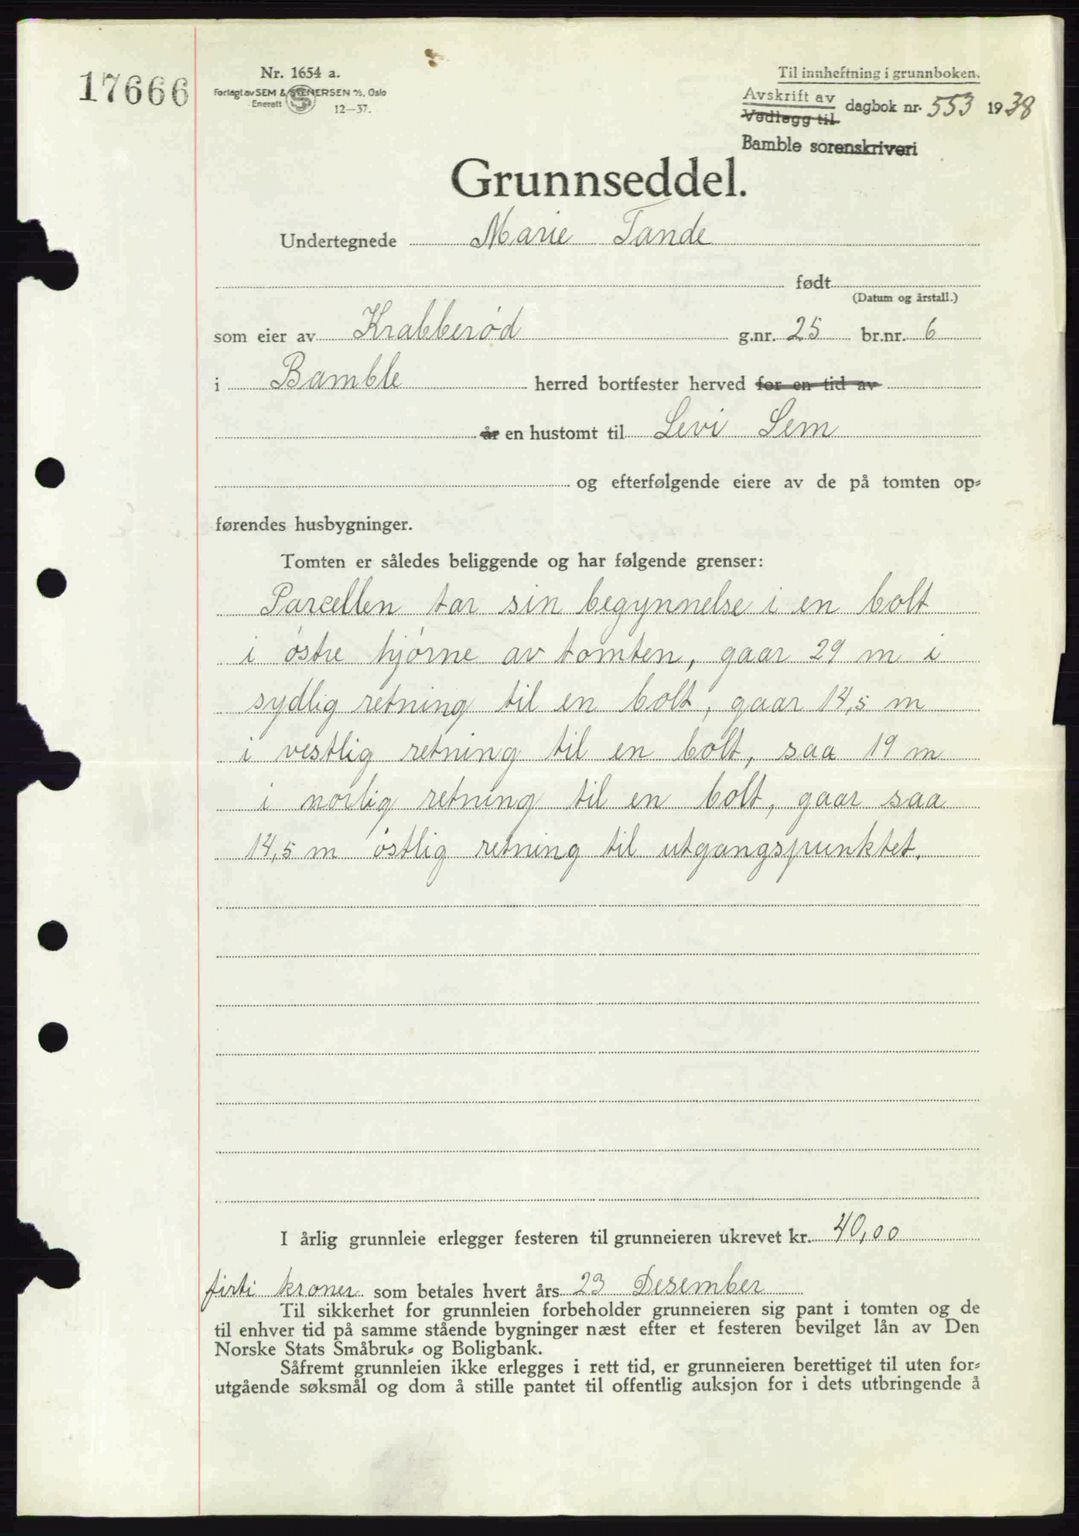 17666
Nr. 1654 a.
Forlagt av SEM & STENERSEN A/S, Oslo
Enerett 12—37.
Til innheftning i grunnboken.
Avskrift av
Vedlegg til dagbok nr. 553 1938
Bamble sorenskriveri
Grunnseddel.
Undertegnede Marie Tande
født
(Datum og årstall.)
som eier av Krabberød g.nr. 25 br.nr. 6
i Bamble herred bortfester herved for en tid av
år en hustomt til Levi Sem
og efterfølgende eiere av de på tomten op-
førendes husbygninger.
Tomten er således beliggende og har følgende grenser:
Parcellen tar sin begynnelse i en bolt
i østre hjørne av tomten, gaar 29 m i
sydlig retning til en bolt, gaar 14,5 m
i vestlig retning til en bolt, saa 19 m
i norlig retning til en bolt, gaar saa
14,5 m østlig retning til utgangspunktet.
I årlig grunnleie erlegger festeren til grunneieren ukrevet kr. 40,00
firti kroner som betales hvert års 23 Desember
Til sikkerhet for grunnleien forbeholder grunneieren sig pant i tomten og de
til enhver tid på samme stående bygninger næst efter et festeren bevilget lån av Den
Norske Stats Småbruk- og Boligbank.
Såfremt grunnleien ikke erlegges i rett tid, er grunneieren berettiget til uten for-
utgående søksmål og dom å stille pantet til offentlig auksjon for i dets utbringende å